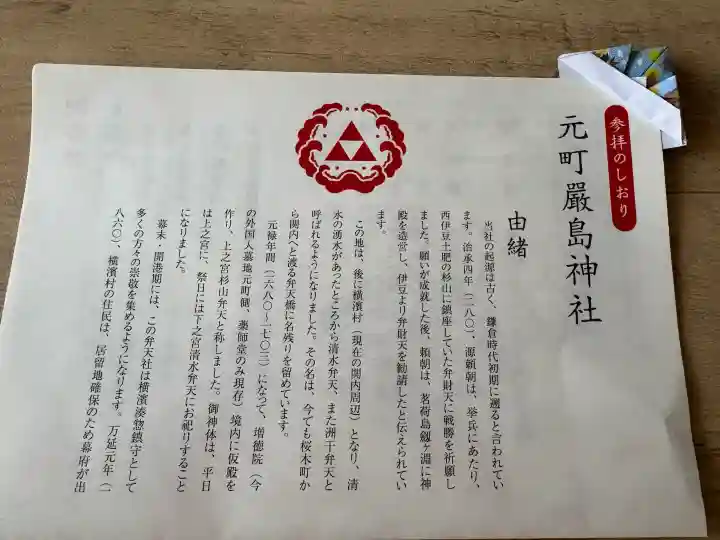 参拝のしおり
元町嚴島神社
由緒
当社の起源は古く、鎌倉時代初期に遡ると言われてい
ます。治承四年(一一八〇)、源頼朝は、挙兵にあたり、
西伊豆土肥の杉山に鎮座していた弁財天に戦勝を祈願し
ました。願いが成就した後、頼朝は、茗荷島劔ヶ淵に神
殿を造営し、伊豆より弁財天を勧請したと伝えられてい
ます。
この地は、後に横濱村(現在の関内周辺)となり、清
水の湧水があったところから清水弁天、また洲干弁天と
呼ばれるようになりました。その名は、今でも桜木町か
ら関内へと渡る弁天橋に名残りを留めています。
元禄年間(一六八〇〜一七〇三)になって、増徳院(今
の外国人墓地元町側、薬師堂のみ現存)境内に仮殿を
作り、上之宮杉山弁天と称しました。御神体は、平日
は上之宮に、祭日には下之宮清水弁天にお祀りすること
になりました。
幕末・開港期には、この弁天社は横濱湊惣鎮守として
多くの方々の崇敬を集めるようになります。万延元年(一
八六〇)、横濱村の住民は、居留地確保のため幕府が出